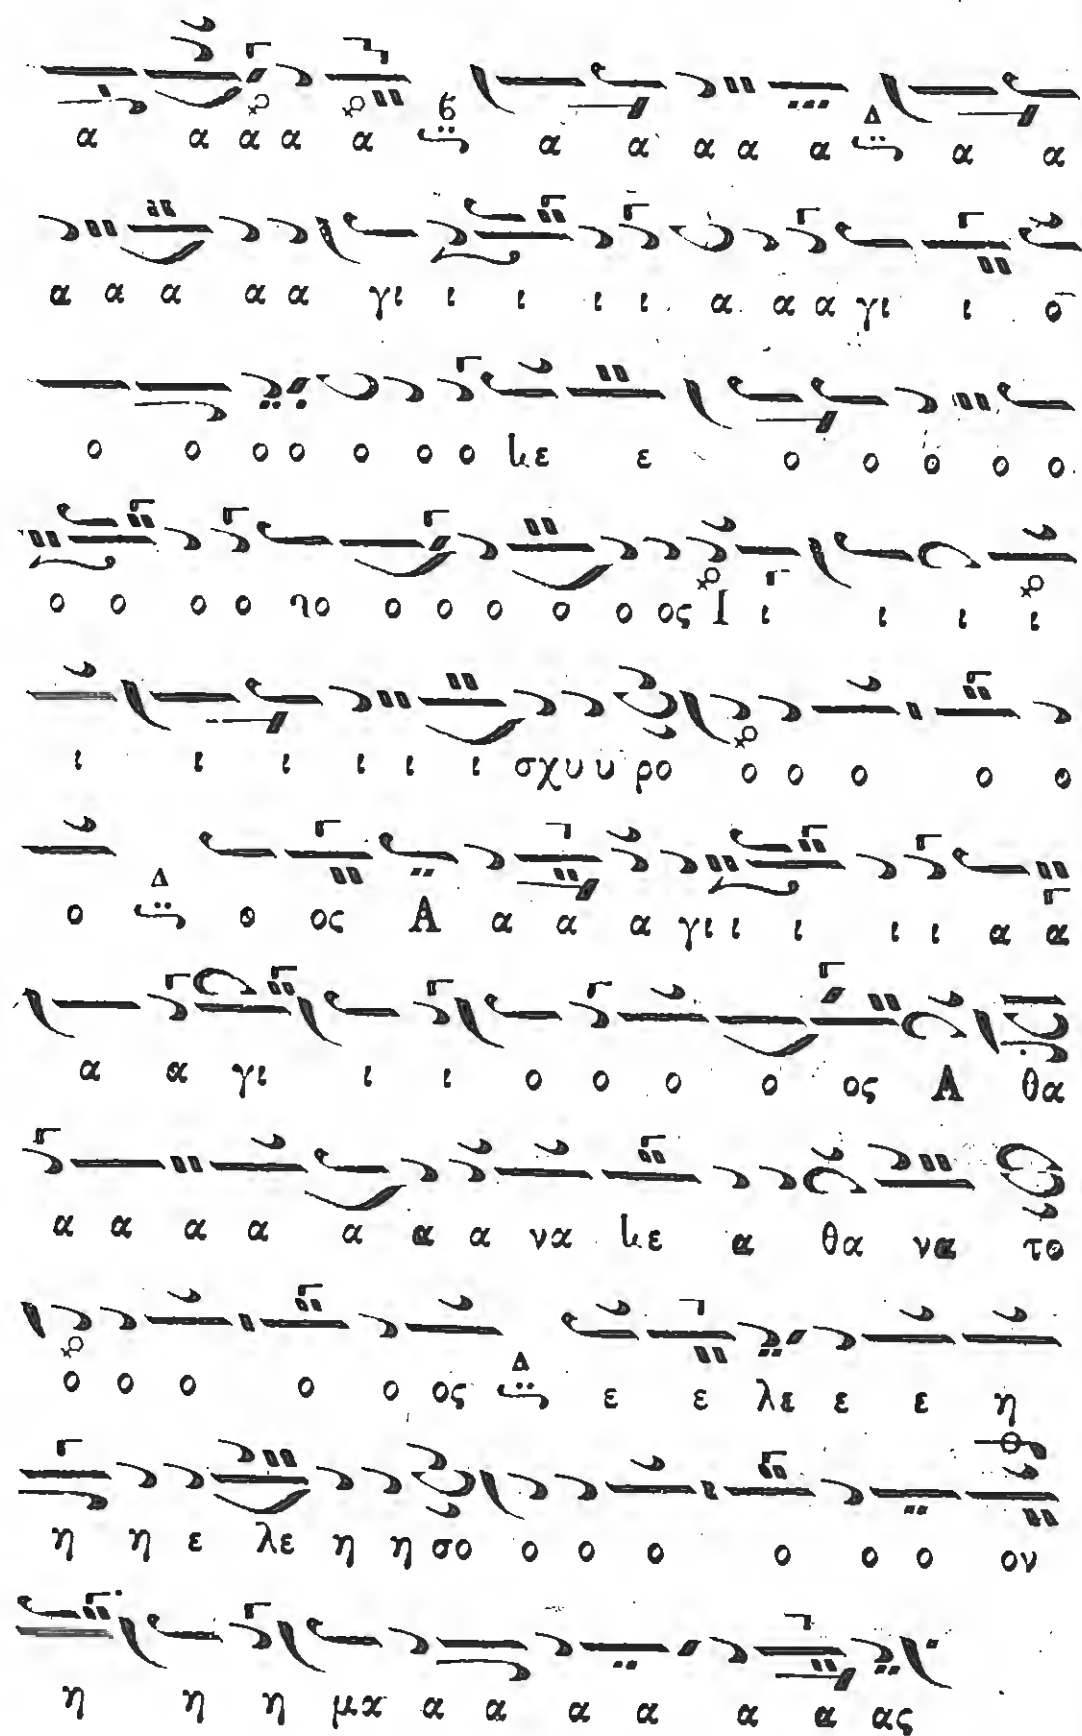 α α α α α ϐ α α α α α Δ α α
α α α α α γι ι ι ι ι α α α γι ι ο
ο ο ο ο ο ο ο κε ε ο ο ο ο ο
ο ο ο ο το ο ο ο ο ο ος Ι ι ι ι ι
ι ι ι ι ι ι σχυ υ ρο ο ο ο ο ο
ο Δ ο ος Α α α α γι ι ι ι ι α α
α α γι ι ι ο ο ο ο ος Α θα
α α α α α α α να κε α θα να το
ο ο ο ο ο ος Δ ε ε λε ε ε η
η η ε λε η η σο ο ο ο ο ο ο ον
η η η μα α α α α α α ας